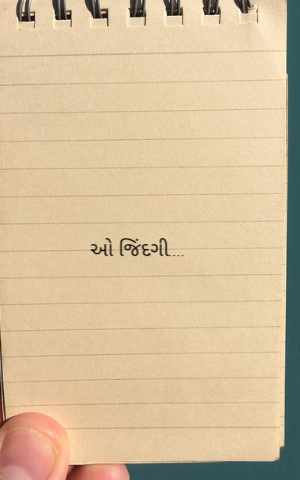 ઓ જિંદગી...